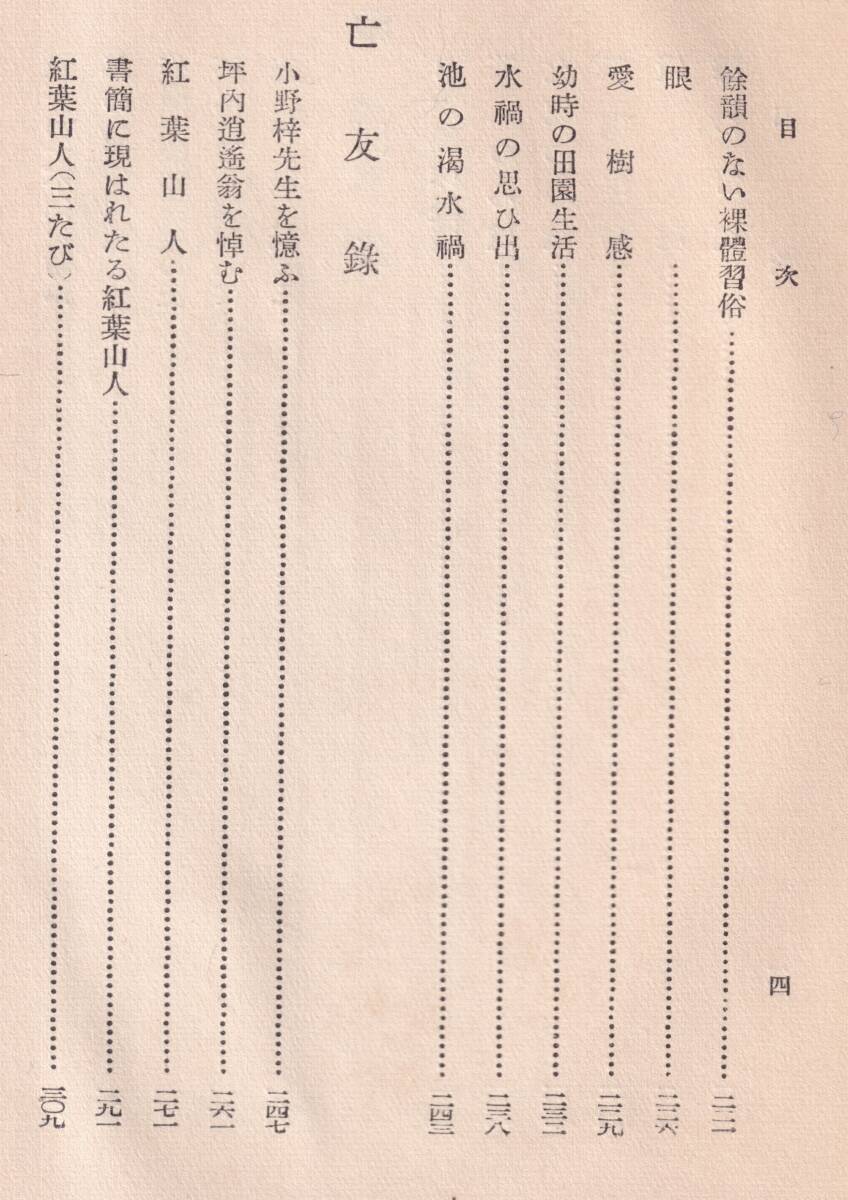 目次 四
餘韻のない裸體習俗……二二一
眼……二二六
愛樹感……二二九
幼時の田園生活……二三二
水禍の思ひ出……二三八
池の渴水禍……二四三
亡友錄
小野梓先生を憶ふ……二四七
坪內逍遙翁を悼む……二六一
紅葉山人……二七一
書簡に現はれたる紅葉山人……二九一
紅葉山人(三たび)……三〇九